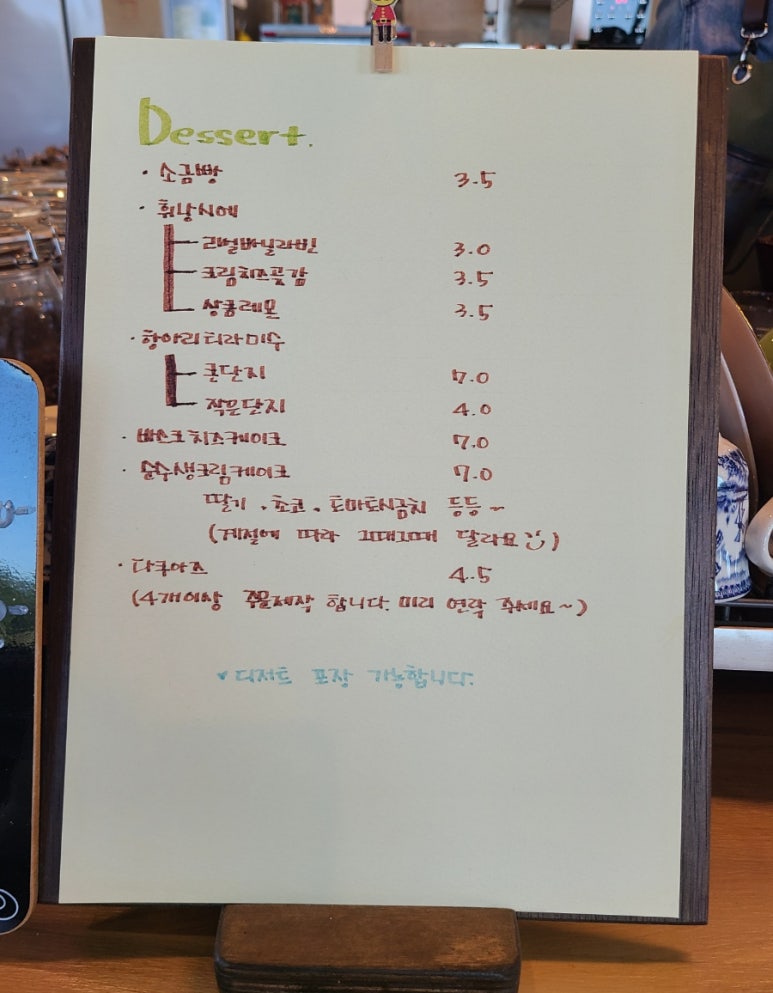 Dessert.
· 소금빵 3.5
· 휘낭시에
리얼바닐라빈 3.0
크림치즈곶감 3.5
상콤레몬 3.5
· 항아리티라미수
큰단지 7.0
작은단지 4.0
· 바스크치즈케이크 7.0
· 순수생크림케이크 7.0
딸기 . 초코 . 토마토시금치 등등~
(계절에 따라 그때그때 달라요)
· 다쿠아즈 4.5
(4개이상 주문제작 합니다. 미리 연락 주세요~)
♥ 디저트 포장 가능합니다.